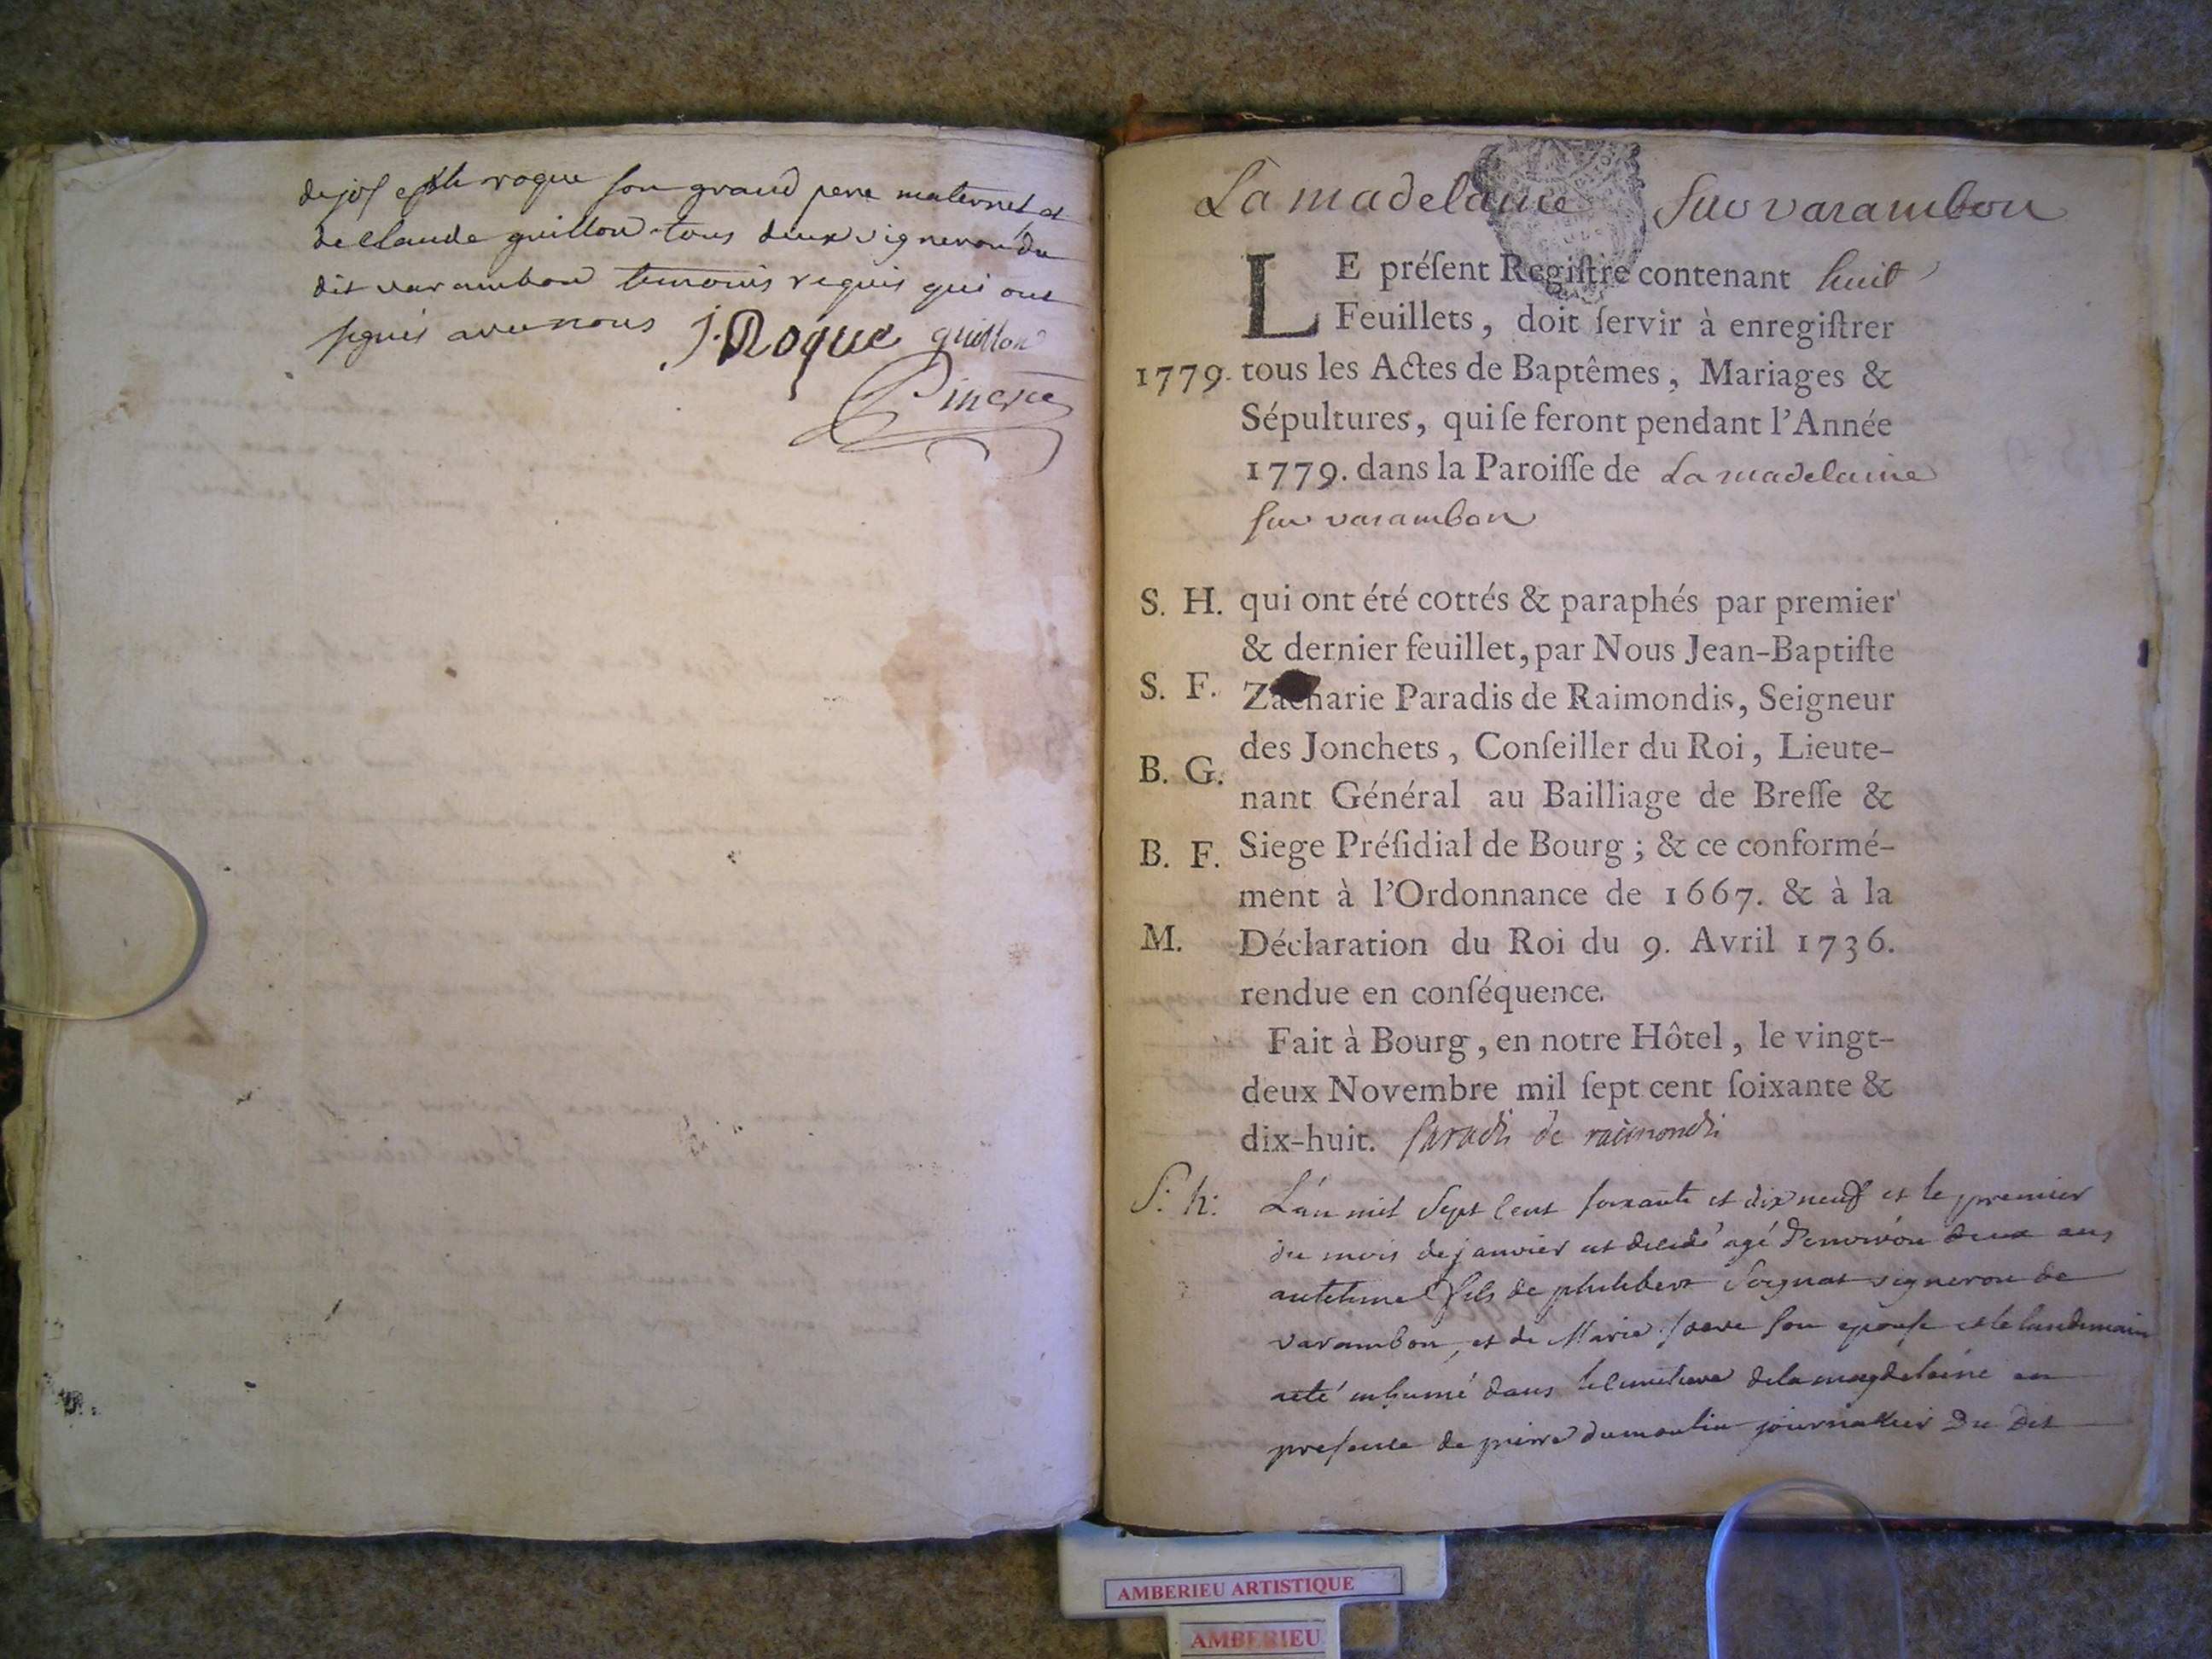 de joseph roque son grand pere maternel et
de claude guillon tous deux vigneron du
dit varambon temoins requis qui ont
signés avec nous J. Roque guillon
La madelaine sur varambon
LE préſent Regiſtre contenant huit
Feuillets, doit ſervir à enregiſtrer
1779. tous les Actes de Baptêmes, Mariages &
Sépultures, qui ſe feront pendant l'Année
1779. dans la Paroiſſe de La madelaine
sur varambon
S. H. qui ont été cottés & paraphés par premier
& dernier feuillet, par Nous Jean-Baptiſte
S. F. Zacharie Paradis de Raimondis, Seigneur
des Jonchets, Conſeiller du Roi, Lieute-
B. G. nant Général au Bailliage de Breſſe &
B. F. Siege Préſidial de Bourg ; & ce conformé-
ment à l'Ordonnance de 1667. & à la
M. Déclaration du Roi du 9. Avril 1736.
rendue en conſéquence.
Fait à Bourg, en notre Hôtel, le vingt-
deux Novembre mil ſept cent ſoixante &
dix-huit. Paradis de raimondis
S: h: L'an mil sept cent soixante et dix neuf et le premier
du mois de janvier est decedé agé d'environ deux ans
antelme fils de philibert Soignat vigneron de
varambon, et de Marie son epouse et le landemain
a eté inhumé dans le cimetiere de la magdelaine en
presence de pierre dumoulin journallier du dit
AMBERIEU ARTISTIQUE
AMBERIEU